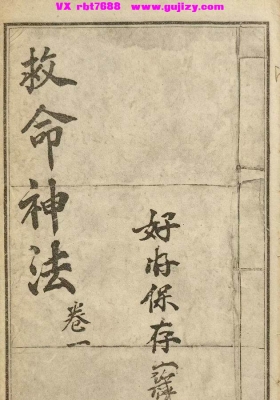 VX rbt7688 www.gujizy.com
救命神法
卷一
好好保存